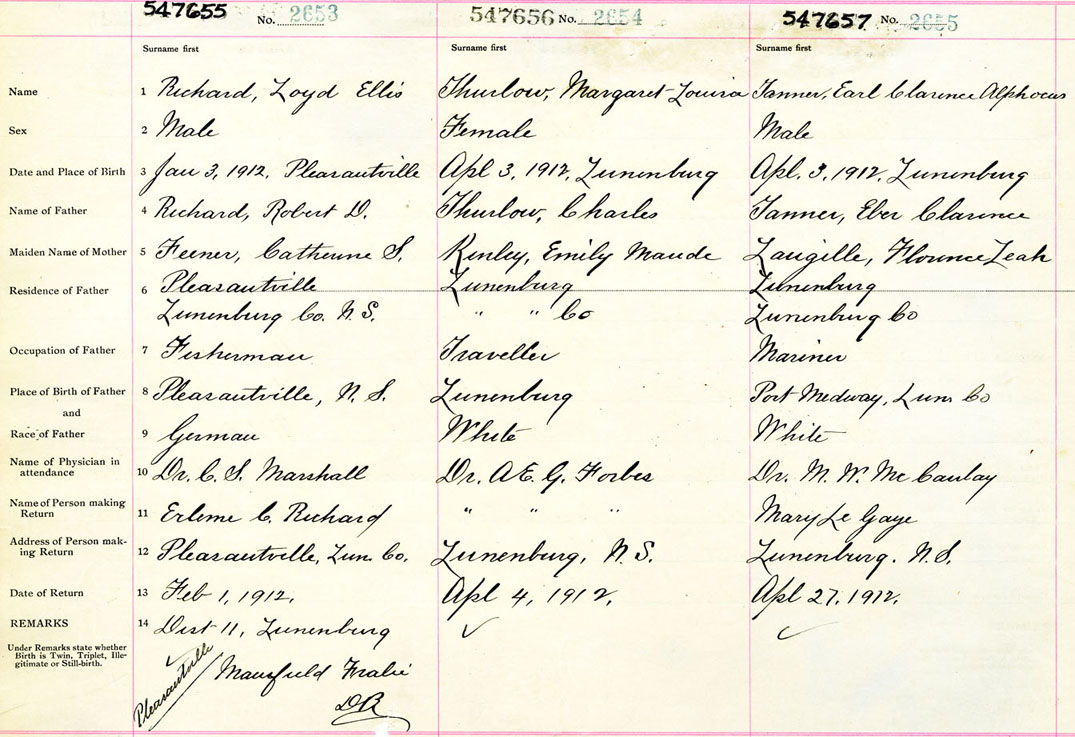 547655 No. 2653 547656 No. 2654 547657 No. 2655
Surname first Surname first Surname first
Name 1 Richard, Loyd Ellis Thurlow, Margaret Louisa Tanner, Earl Clarence Alphocus
Sex 2 Male Female Male
Date and Place of Birth 3 Jan 3, 1912, Pleasantville Apl 3, 1912, Lunenburg Apl. 3, 1912, Lunenburg
Name of Father 4 Richard, Robert D. Thurlow, Charles Tanner, Eber Clarence
Maiden Name of Mother 5 Feener, Catherine S. Kinley, Emily Maude Langille, Florence Leah
Residence of Father 6 Pleasantville Lunenburg Lunenburg
Lunenburg Co. N. S. " " Co Lunenburg Co
Occupation of Father 7 Fisherman Traveller Mariner
Place of Birth of Father 8 Pleasantville, N. S. Lunenburg Port Medway, Lun. Co
and
Race of Father 9 German White White
Name of Physician in
attendance 10 Dr. C. S. Marshall Dr. A. E. G. Forbes Dr. M. W. Mc Caulay
Name of Person making
Return 11 C. Richard " " " Mary Le Gaye
Address of Person mak-
ing Return 12 Pleasantville, Lun. Co. Lunenburg, N. S. Lunenburg. N. S.
Date of Return 13 Feb 1, 1912. Apl 4, 1912. Apl 27, 1912.
REMARKS 14 Dist 11, Lunenburg ✓ ✓
Under Remarks state whether
Birth is Twin, Triplet, Ille-
gitimate or Still-birth.
✓ Pleasantville Mansfield
DR